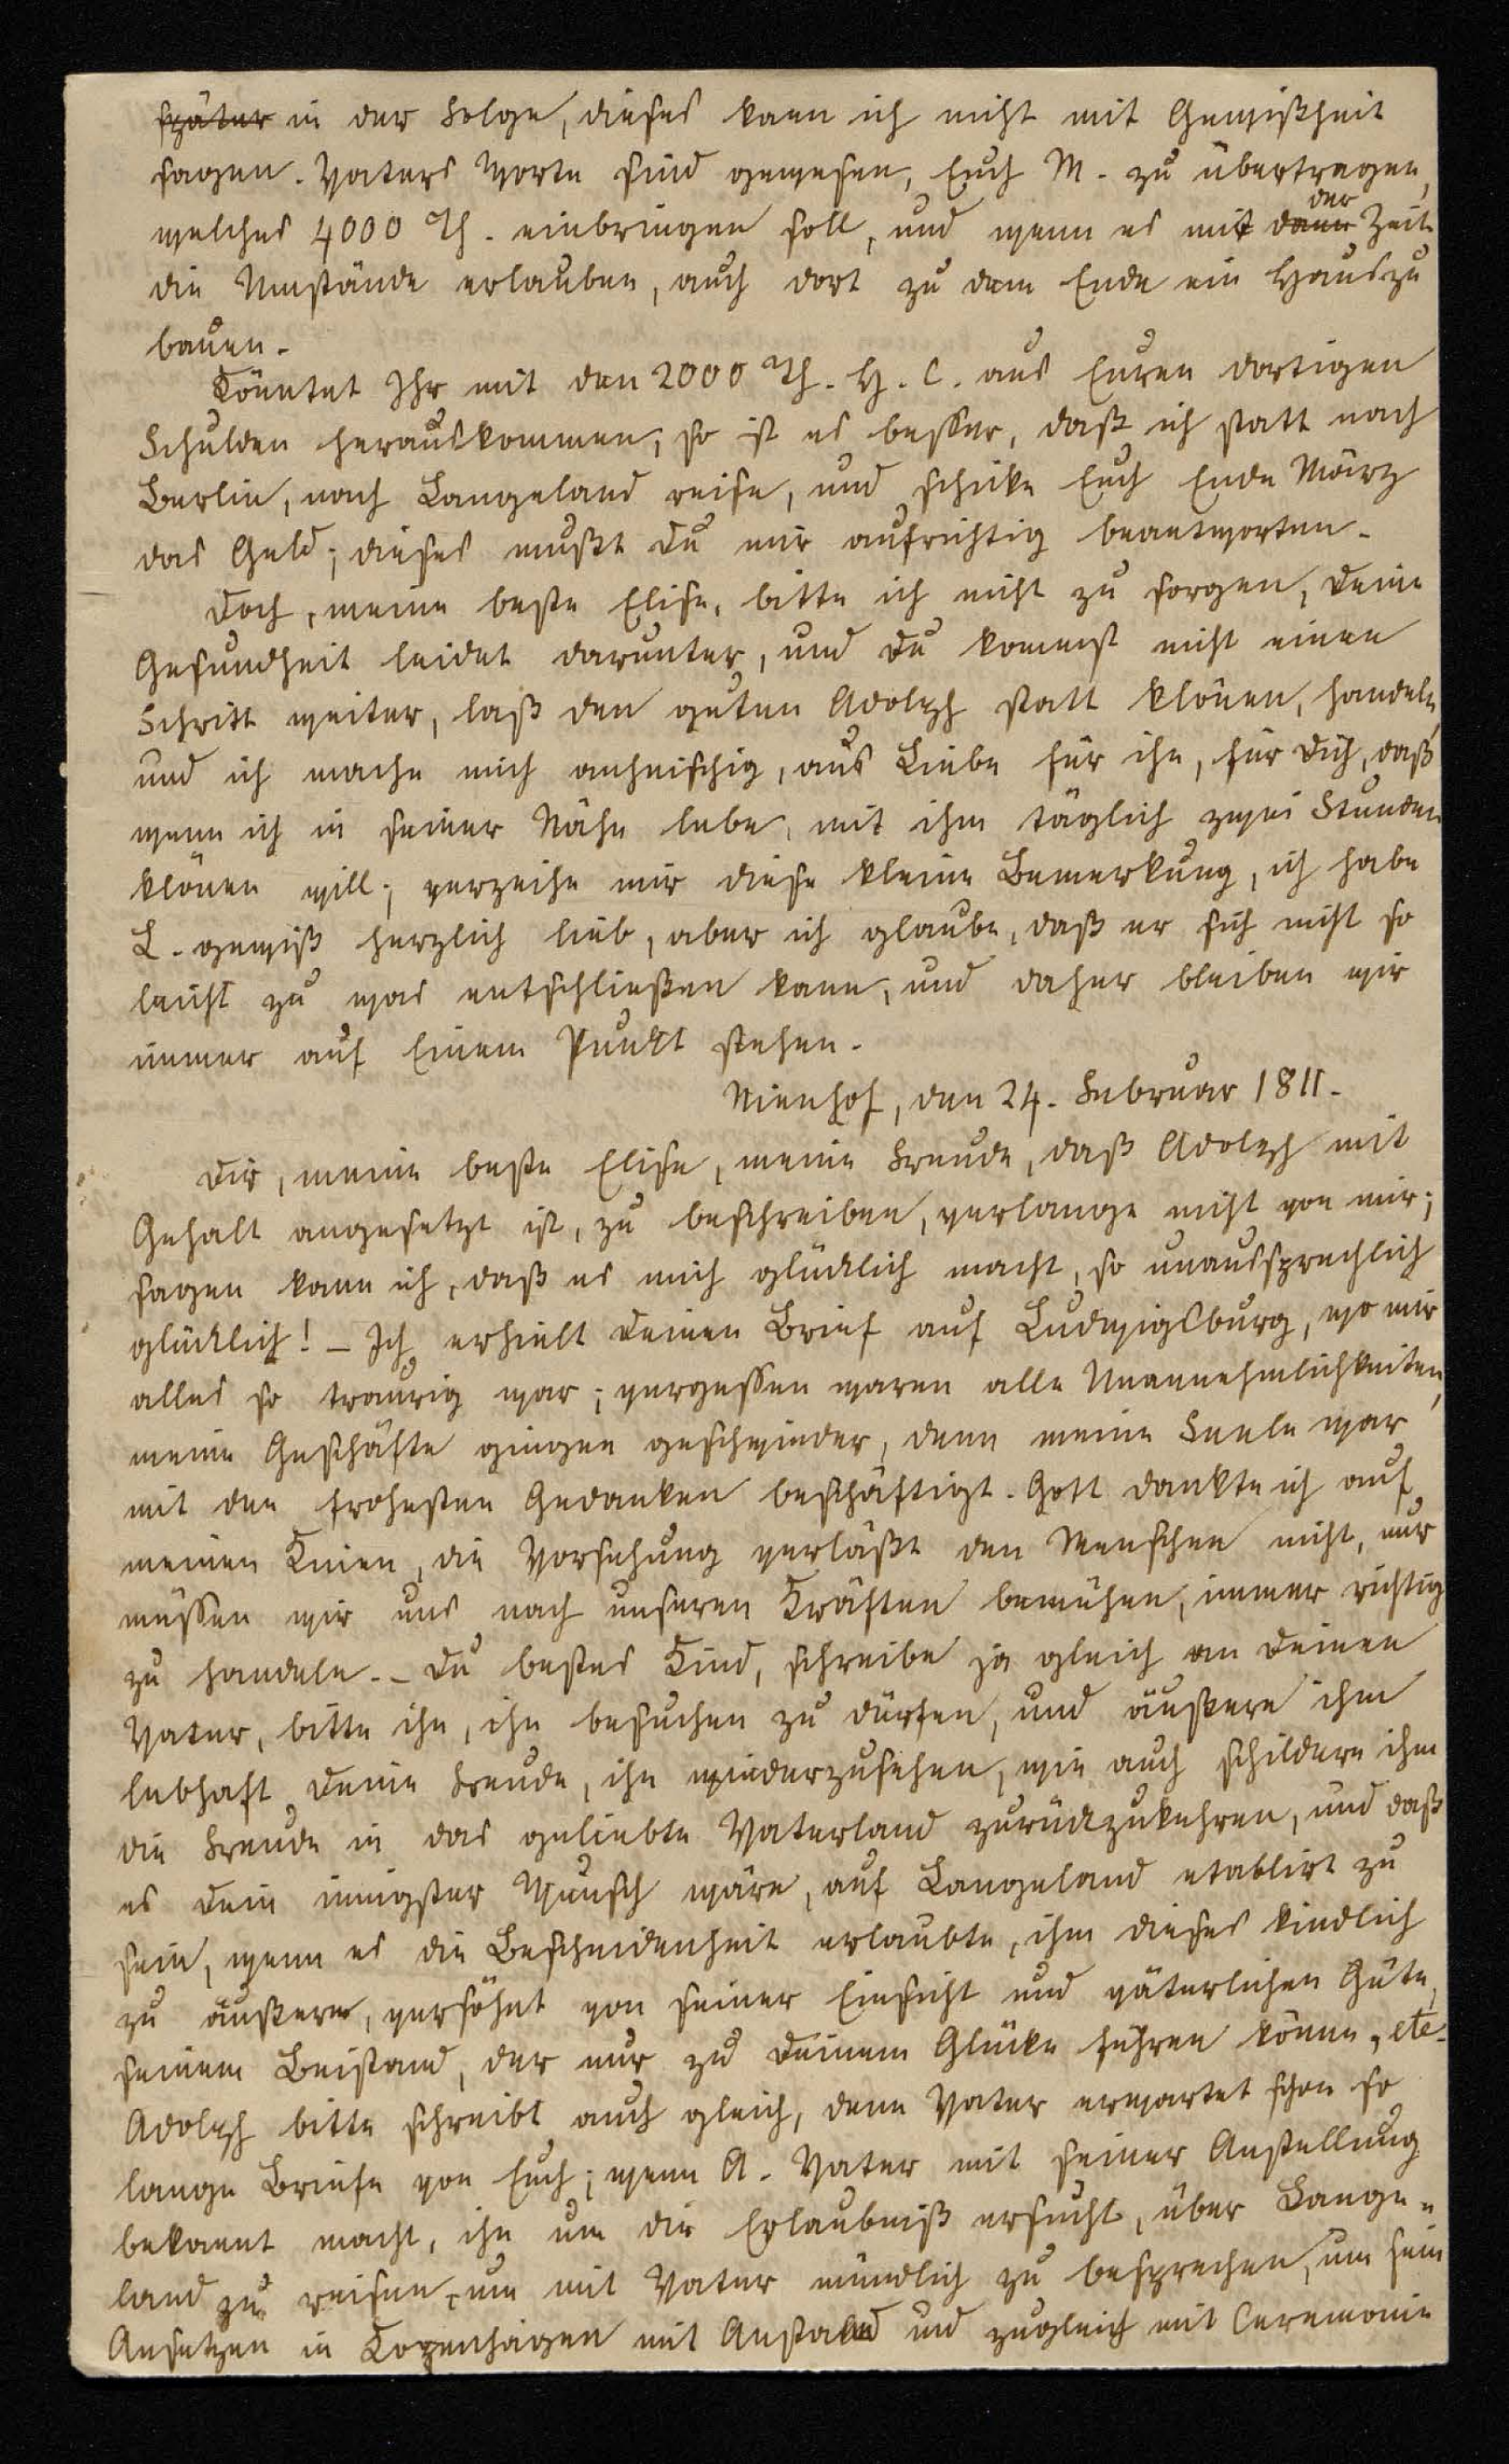 später in der Folge, dieses kann ich nicht mit Gewißheit
sagen. Vaters Worte sind gewesen, Euch M. zu übertragen,
welches 4000 Th. einbringen soll, und wenn es mit dann der Zeit
die Umstände erlauben, auch dort zu dem Ende ein Haus zu
bauen.
Könntet Ihr mit den 2000 Th. H. C. aus Euren dortigen
Schulden herauskommen, so ist es besser, daß ich statt nach
Berlin, nach Langeland reise, und schicke Euch Ende März
das Geld; dieses mußt Du mir aufrichtig beantworten.
Doch, meine beste Elise, bitte ich nicht zu sorgen, Deine
Gesundheit leidet darunter, und Du kommst nicht einen
Schritt weiter, laß den guten Adolph statt klönen, handeln,
und ich mache mich anheischig, aus Liebe für ihn, für Dich, daß
wenn ich in seiner Nähe lebe, mit ihm täglich zwei Stunden
klönen will; verzeihe mir diese kleine Bemerkung, ich habe
L. gewiß herzlich lieb, aber ich glaube, daß er sich nicht so
leicht zu was entschließen kann, und daher bleiben wir
immer auf Einem Punkt stehen.
Nienhof, den 24. Februar 1811.
Dir, meine beste Elise, meine Freude, daß Adolph mit
Gehalt angesetzt ist, zu beschreiben, verlange nicht von mir;
sagen kann ich, daß es mich glücklich macht, so unaussprechlich
glücklich! – Ich erhielt Deinen Brief auf Ludwigsburg, wo mir
alles so traurig war; vergessen waren alle Unannehmlichkeiten,
meine Geschäfte gingen geschwinder, denn meine Seele war
mit den frohesten Gedanken beschäftigt. Gott dankte ich auf
meinen Knien, die Vorsehung verläßt den Menschen nicht, nur
müssen wir uns nach unseren Kräften bemühen, immer richtig
zu handeln. – Du bestes Kind, schreibe ja gleich an Deinen
Vater, bitte ihn, ihn besuchen zu dürfen, und äußere ihm
lebhaft Deine Freude, ihn wiederzusehen, wie auch schildere ihm
die Freude in das geliebte Vaterland zurückzukehren, und daß
es Dein innigster Wunsch wäre, auf Langeland etablirt zu
sein, wenn es die Bescheidenheit erlaubte, ihm dieses kindlich
zu äußern, versöhnt von seiner Einsicht und väterlichen Güte,
seinem Beistand, der nur zu Deinem Glücke führen könne, etc.
Adolph bitte schreibt auch gleich, denn Vater erwartet schon so
lange Briefe von Euch; wenn A. Vater mit seiner Anstellung
bekannt macht, ihn um die Erlaubniß ersucht, über Lange-
land zu reisen, um mit Vater mündlich zu besprechen, um sein
Ansetzen in Kopenhagen mit Anstand und zugleich mit Ceremonie